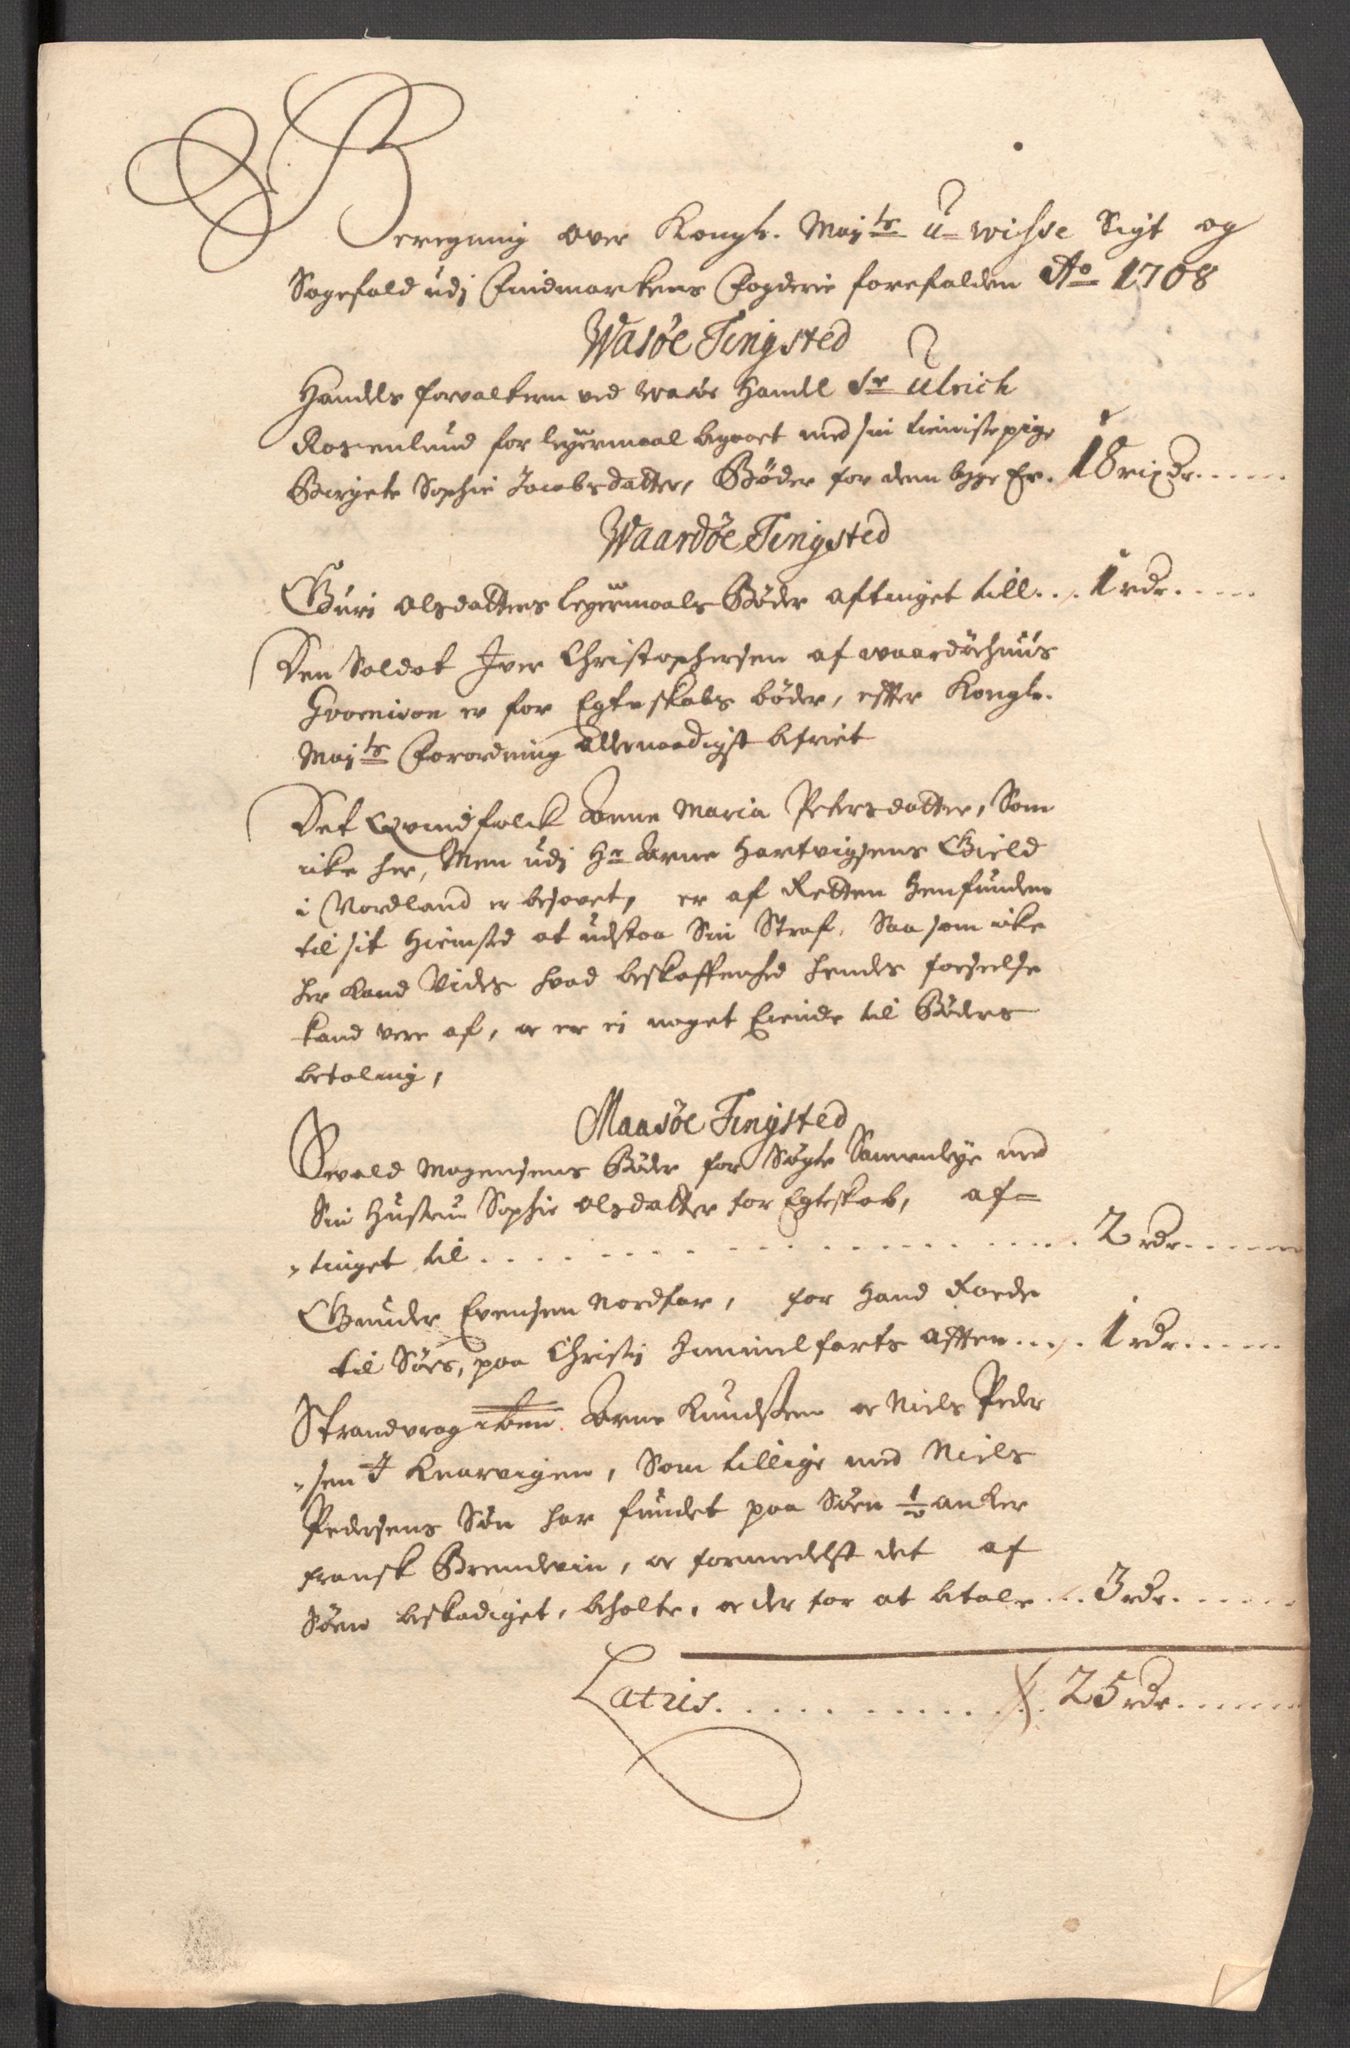 Beregning over Kongl. Maj:ts u-wisse Sigt og
Sagefald udj Findmarkens Fogderie forefalden Ao 1708
Wasöe Tingsted
Handels forvaltern ved wasöe Handl Sr Ulrich
Rosenlund for leyermaal begaaet med sin tieniste pige
Birgete Sophie Jacobsdatter, Böder for dem begge Er. 18 rixdr.....
Waardöe Tingsted
Guri Olsdatters leyermaals Böder aftinget till... 1 rdr.....
Den Soldat Iver Christophersen af waardöehuus
Gvarnison er for Egteskabs böder, efter Kongl.
Maj:ts Forordning Allernaadigst befriet
Det Qvindfolck Anne Maria Petersdatter, Som
icke her, Men udj Hr Arne Hartvigsens Gield
i Nordland er besovet, er af Retten Henfunden
til sit Hiemsted at udstaa Sin Straf, Saa som icke
her kand Vides hvad beskaffenhed hendes forseelse
kand vere af, oc er ei noget Eiende til Böders
betaling,
Maasöe Tingsted
Evald Mogensens Böder for Sögte Samenleye med
Sin Hustrue Sophie Olsdatter for Egteskab, af-
-tinget til........ 2 rdr.....
Gunder Evensen Nordfar, for Hand Roede
til Söes, paa Christj Himmelfarts Afften.... 1 rdr.....
Strandvrag Arne Knudsen oc Niels Peder
-sen I Knarvigen, Som tillige med Niels
Pedersens Sön har fundet paa Söen 1/2 ancker
fransk Brendevin, oc formedelst det af
Söen beskadiget, beholte, oc der for at betale... 3 rdr.....
Latus......... 25 rdr.....